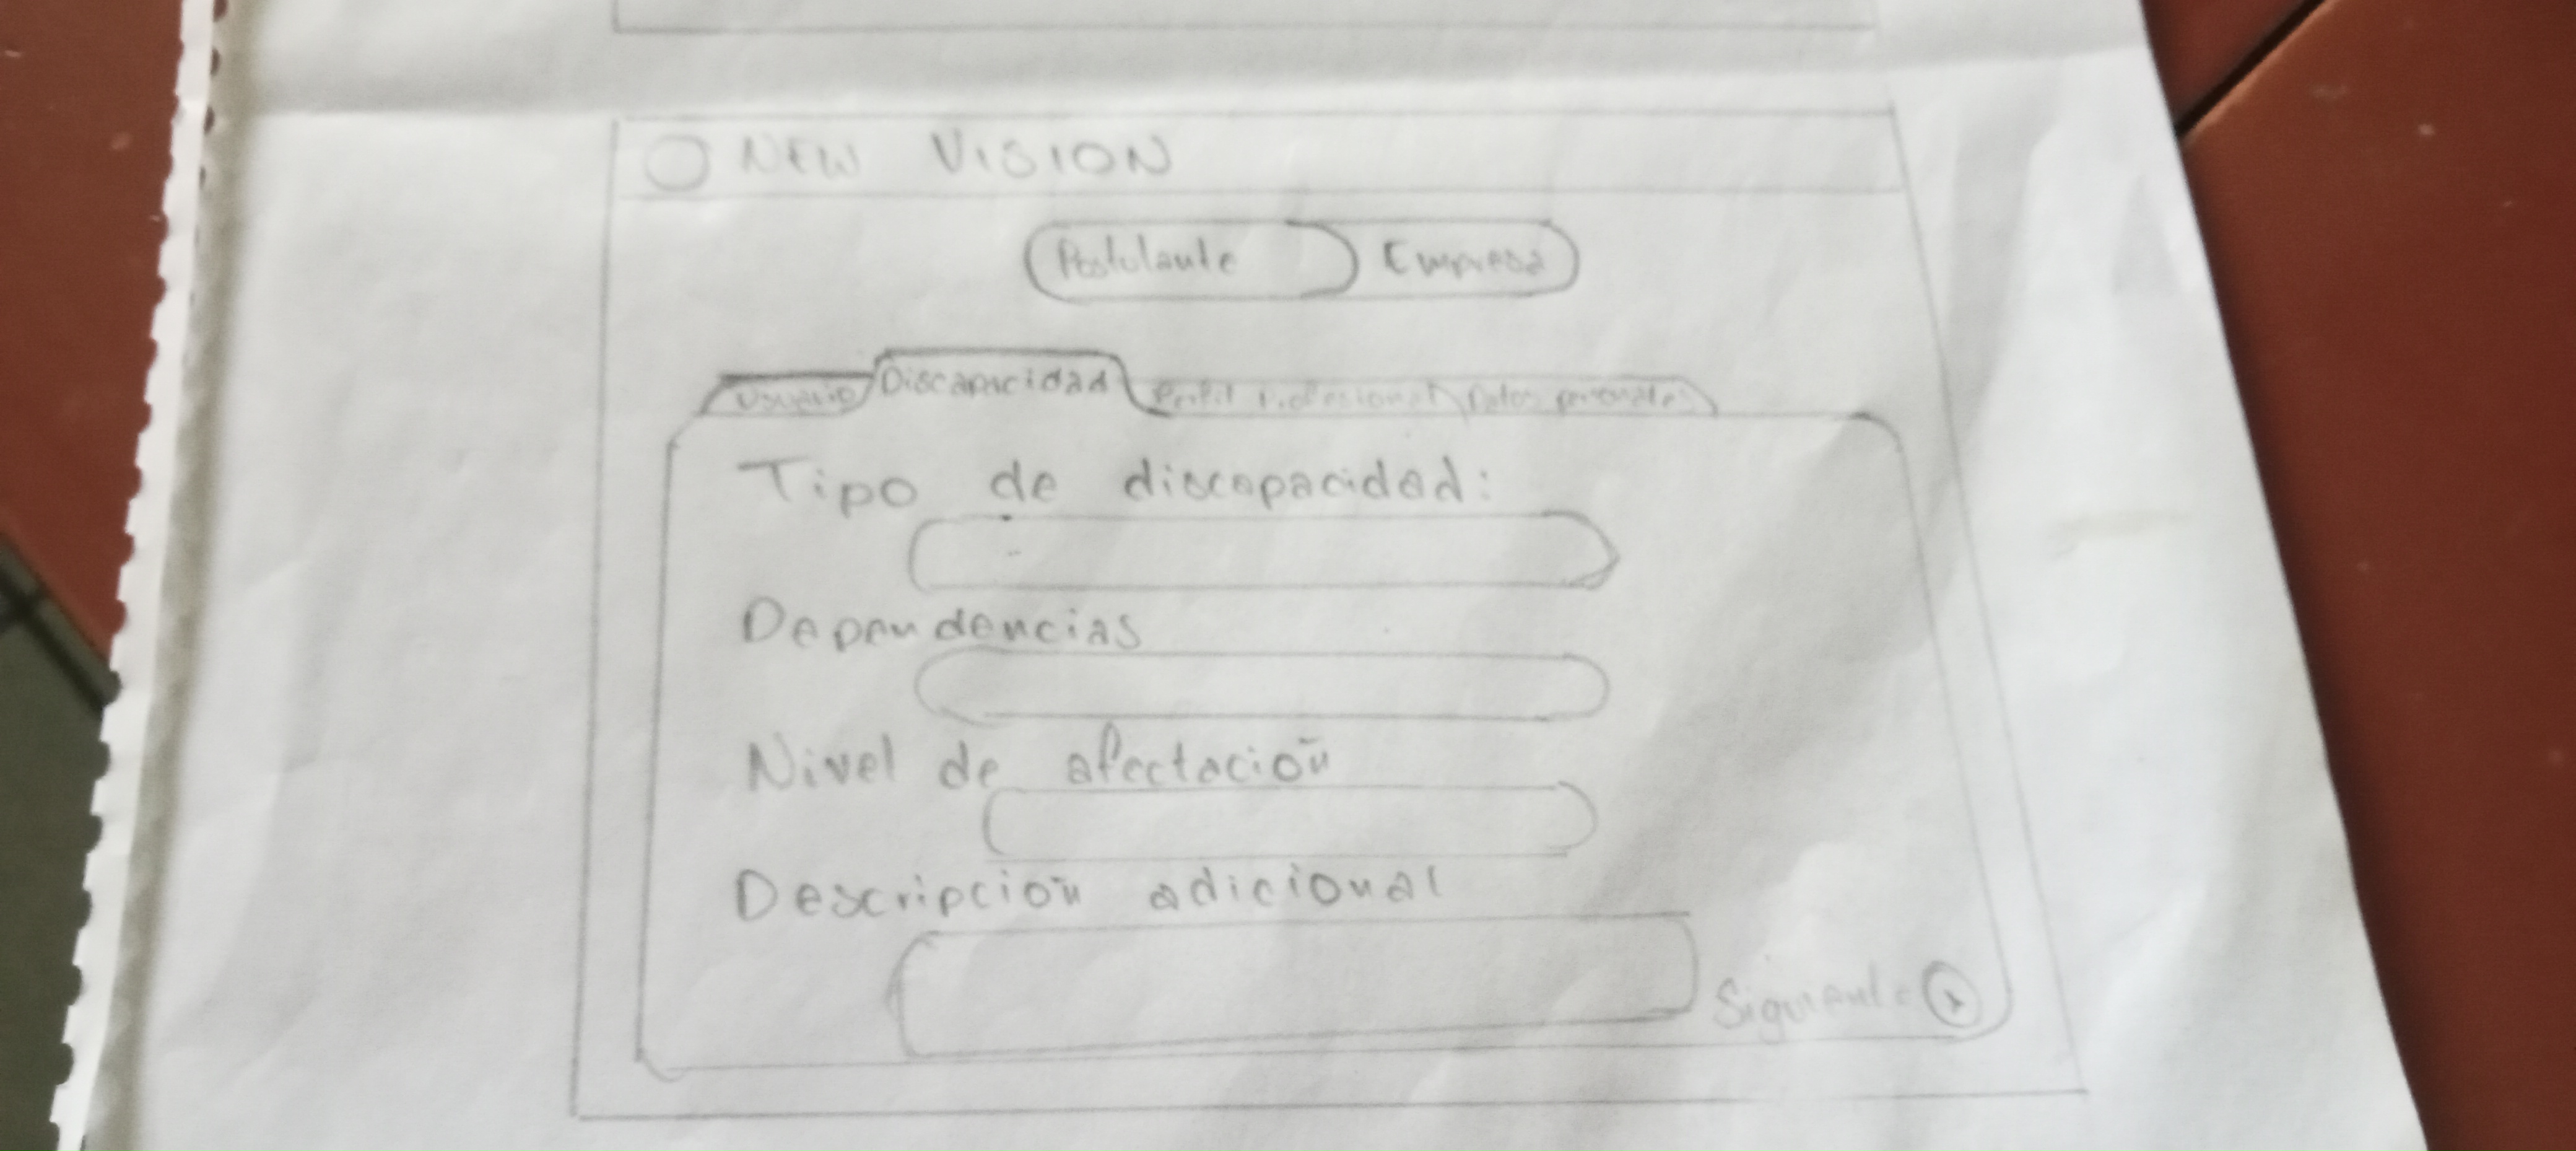 NEW VISION
Postulante Empresa
Usuario Discapacidad Perfil Profesional Datos personales
Tipo de discapacidad:
Dependencias
Nivel de afectación
Descripción adicional
Siguiente